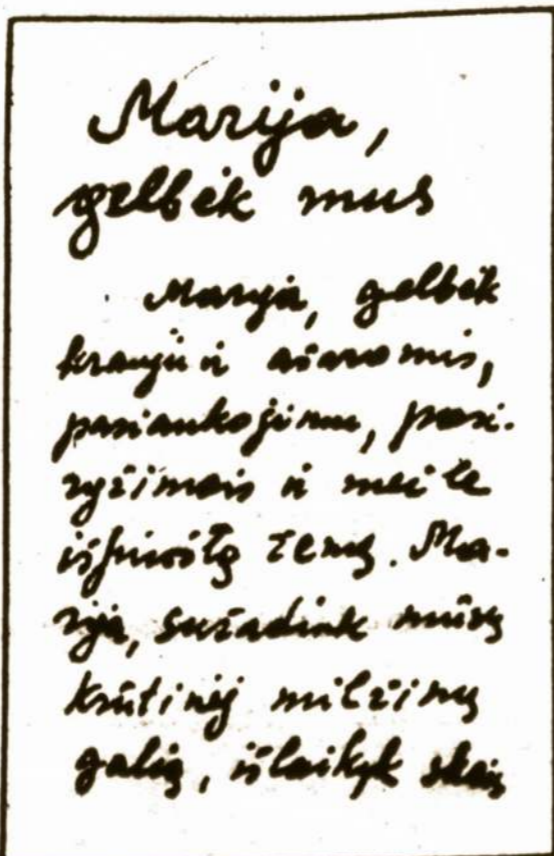 Marija,
gelbėk mus
Marija, gelbėk
krauju ir ašaromis,
pasiaukojimu, pasi-
ryžimais ir meile
išpirktą žemę. Ma-
rija, sužadink mūsų
krūtinėj milžinų
galią, išlaikyk